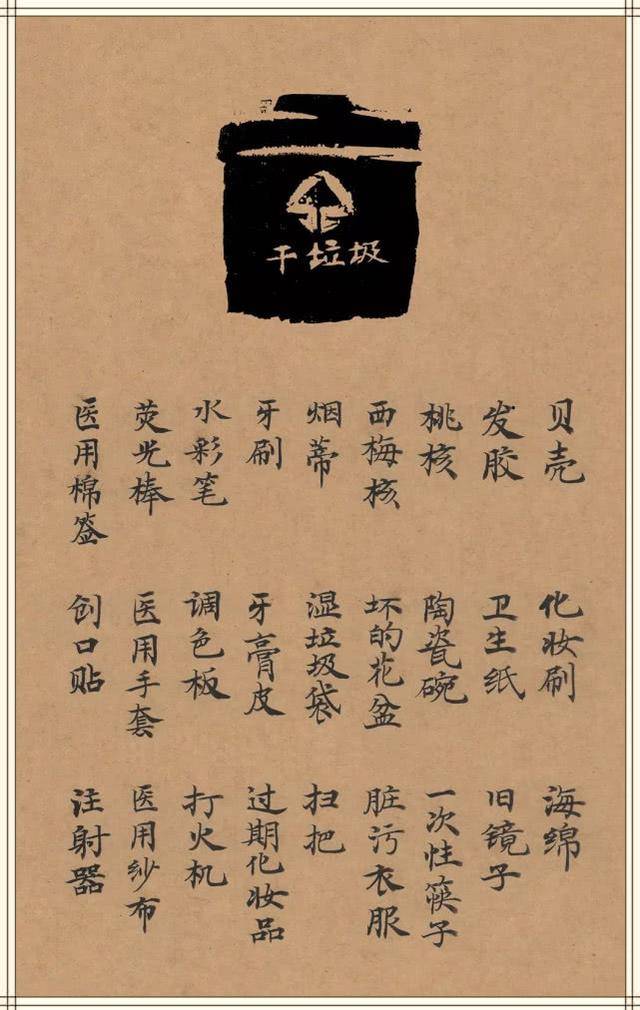 干垃圾
贝壳
发胶
桃核
西梅核
烟蒂
牙刷
水彩笔
荧光棒
医用棉签
化妆刷
卫生纸
陶瓷碗
坏的花盆
湿垃圾袋
牙膏皮
调色板
医用手套
创口贴
海绵
旧镜子
一次性筷子
脏污衣服
扫把
过期化妆品
打火机
医用纱布
注射器